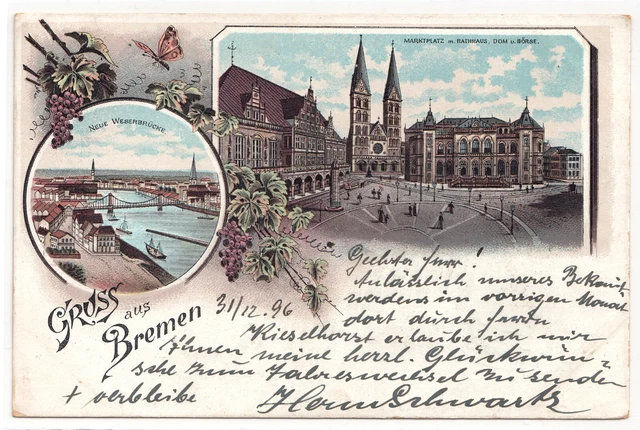 MARKTPLATZ m. RATHHAUS, DOM u. BÖRSE.
NEUE WESERBRÜCKE
GRUSS
aus
Bremen
31/12.96
Geehrter Herr!
Anlässlich unseres Bekannt
werdens im vorrigen Monat
dort durch Herrn
Kieselhorst erlaube ich mir
Ihnen meine herzl. Glückwün-
sche zum Jahreswechsel zu senden
+ verbleibe Herm Schwartz